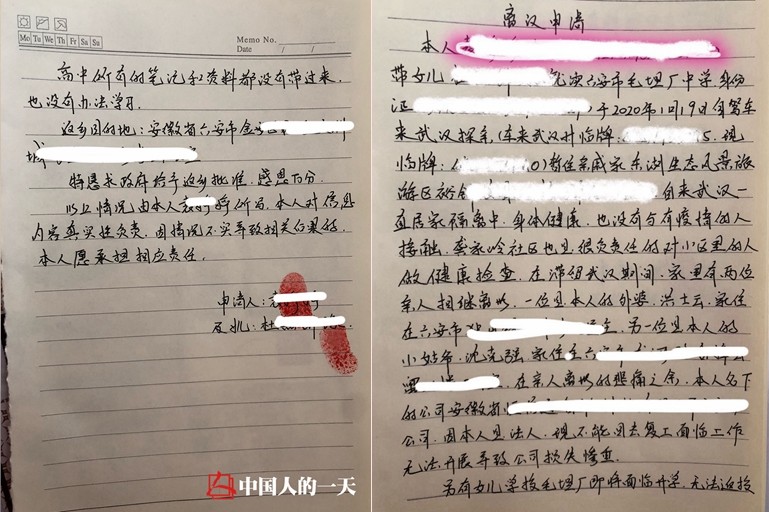 Mo Tu We Th Fr Sa Su
Memo No.
Date / /
高中所有的笔记和资料都没有带过来，
也没有办法学习.
返乡目的地：安徽省六安市金
城
特恳求政府给予返乡批准.感恩万分.
以上情况由本人 所写.本人对信息
内容真实性负责.因情况不实导致相关后果的.
本人愿承担相应责任.
申请人：
女儿：杜
中国人的一天
离汉申请
本人
带女儿 就读六安市毛坦厂中学.身份
证 于2020年1月19日自驾车
来武汉探亲,(车来武汉时临牌： 5.现
临牌： 0)暂住亲戚家东湖生态风景旅
游区 自来武汉一
直居家隔离中.身体健康.也没有与有疫情的人
接触.龚家岭社区也是很负责任的对小区里的人
做健康检查.在滞留武汉期间.家里有两位
亲人相继离世.一位是本人的外婆.洪士云.家住
在六安市 另一位是本人的
小姑爷.沈克强.家住在六安市
在亲人离世的悲痛之余.本人名下
的公司安徽省
公司.因本人是法人.现不能回去复工面临工作
无法开展导致公司损失惨重.
另有女儿学校毛坦厂即将面临开学.无法返校